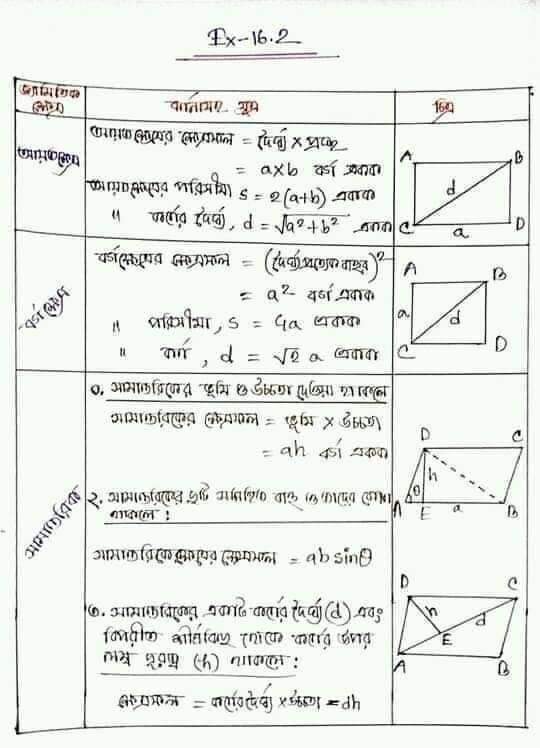 Ex-16.2
জ্যামিতিক ক্ষেত্র
বর্ণনাসহ সূত্র
চিত্র
আয়তক্ষেত্র
আয়তক্ষেত্রের ক্ষেত্রফল = দৈর্ঘ্য × প্রস্থ
= a×b বর্গ একক
আয়তক্ষেত্রের পরিসীমা s = 2(a+b) একক
" কর্ণের দৈর্ঘ্য, d = √a²+b² একক
A B
d
C a D
বর্গক্ষেত্র
বর্গক্ষেত্রের ক্ষেত্রফল = (দৈর্ঘ্য প্রত্যেক বাহুর)²
= a² বর্গ একক
" পরিসীমা, s = 4a একক
" কর্ণ, d = √2 a একক
A B
a d
C D
সামান্তরিক
১. সামান্তরিকের ভূমি ও উচ্চতা দেওয়া থাকলে
সামান্তরিকের ক্ষেত্রফল = ভূমি × উচ্চতা
= ah বর্গ একক
D C
h
θ
A E a B
২. সামান্তরিকের দুটি সন্নিহিত বাহু ও তাদের কোণ
থাকলে:
সামান্তরিকক্ষেত্রের ক্ষেত্রফল = ab sinθ
৩. সামান্তরিকের একটি কর্ণের দৈর্ঘ্য (d) এবং
বিপরীত শীর্ষবিন্দু থেকে কর্ণের উপর
লম্ব দূরত্ব (h) থাকলে:
ক্ষেত্রফল = কর্ণের দৈর্ঘ্য × উচ্চতা = dh
D C
h d
E
A B